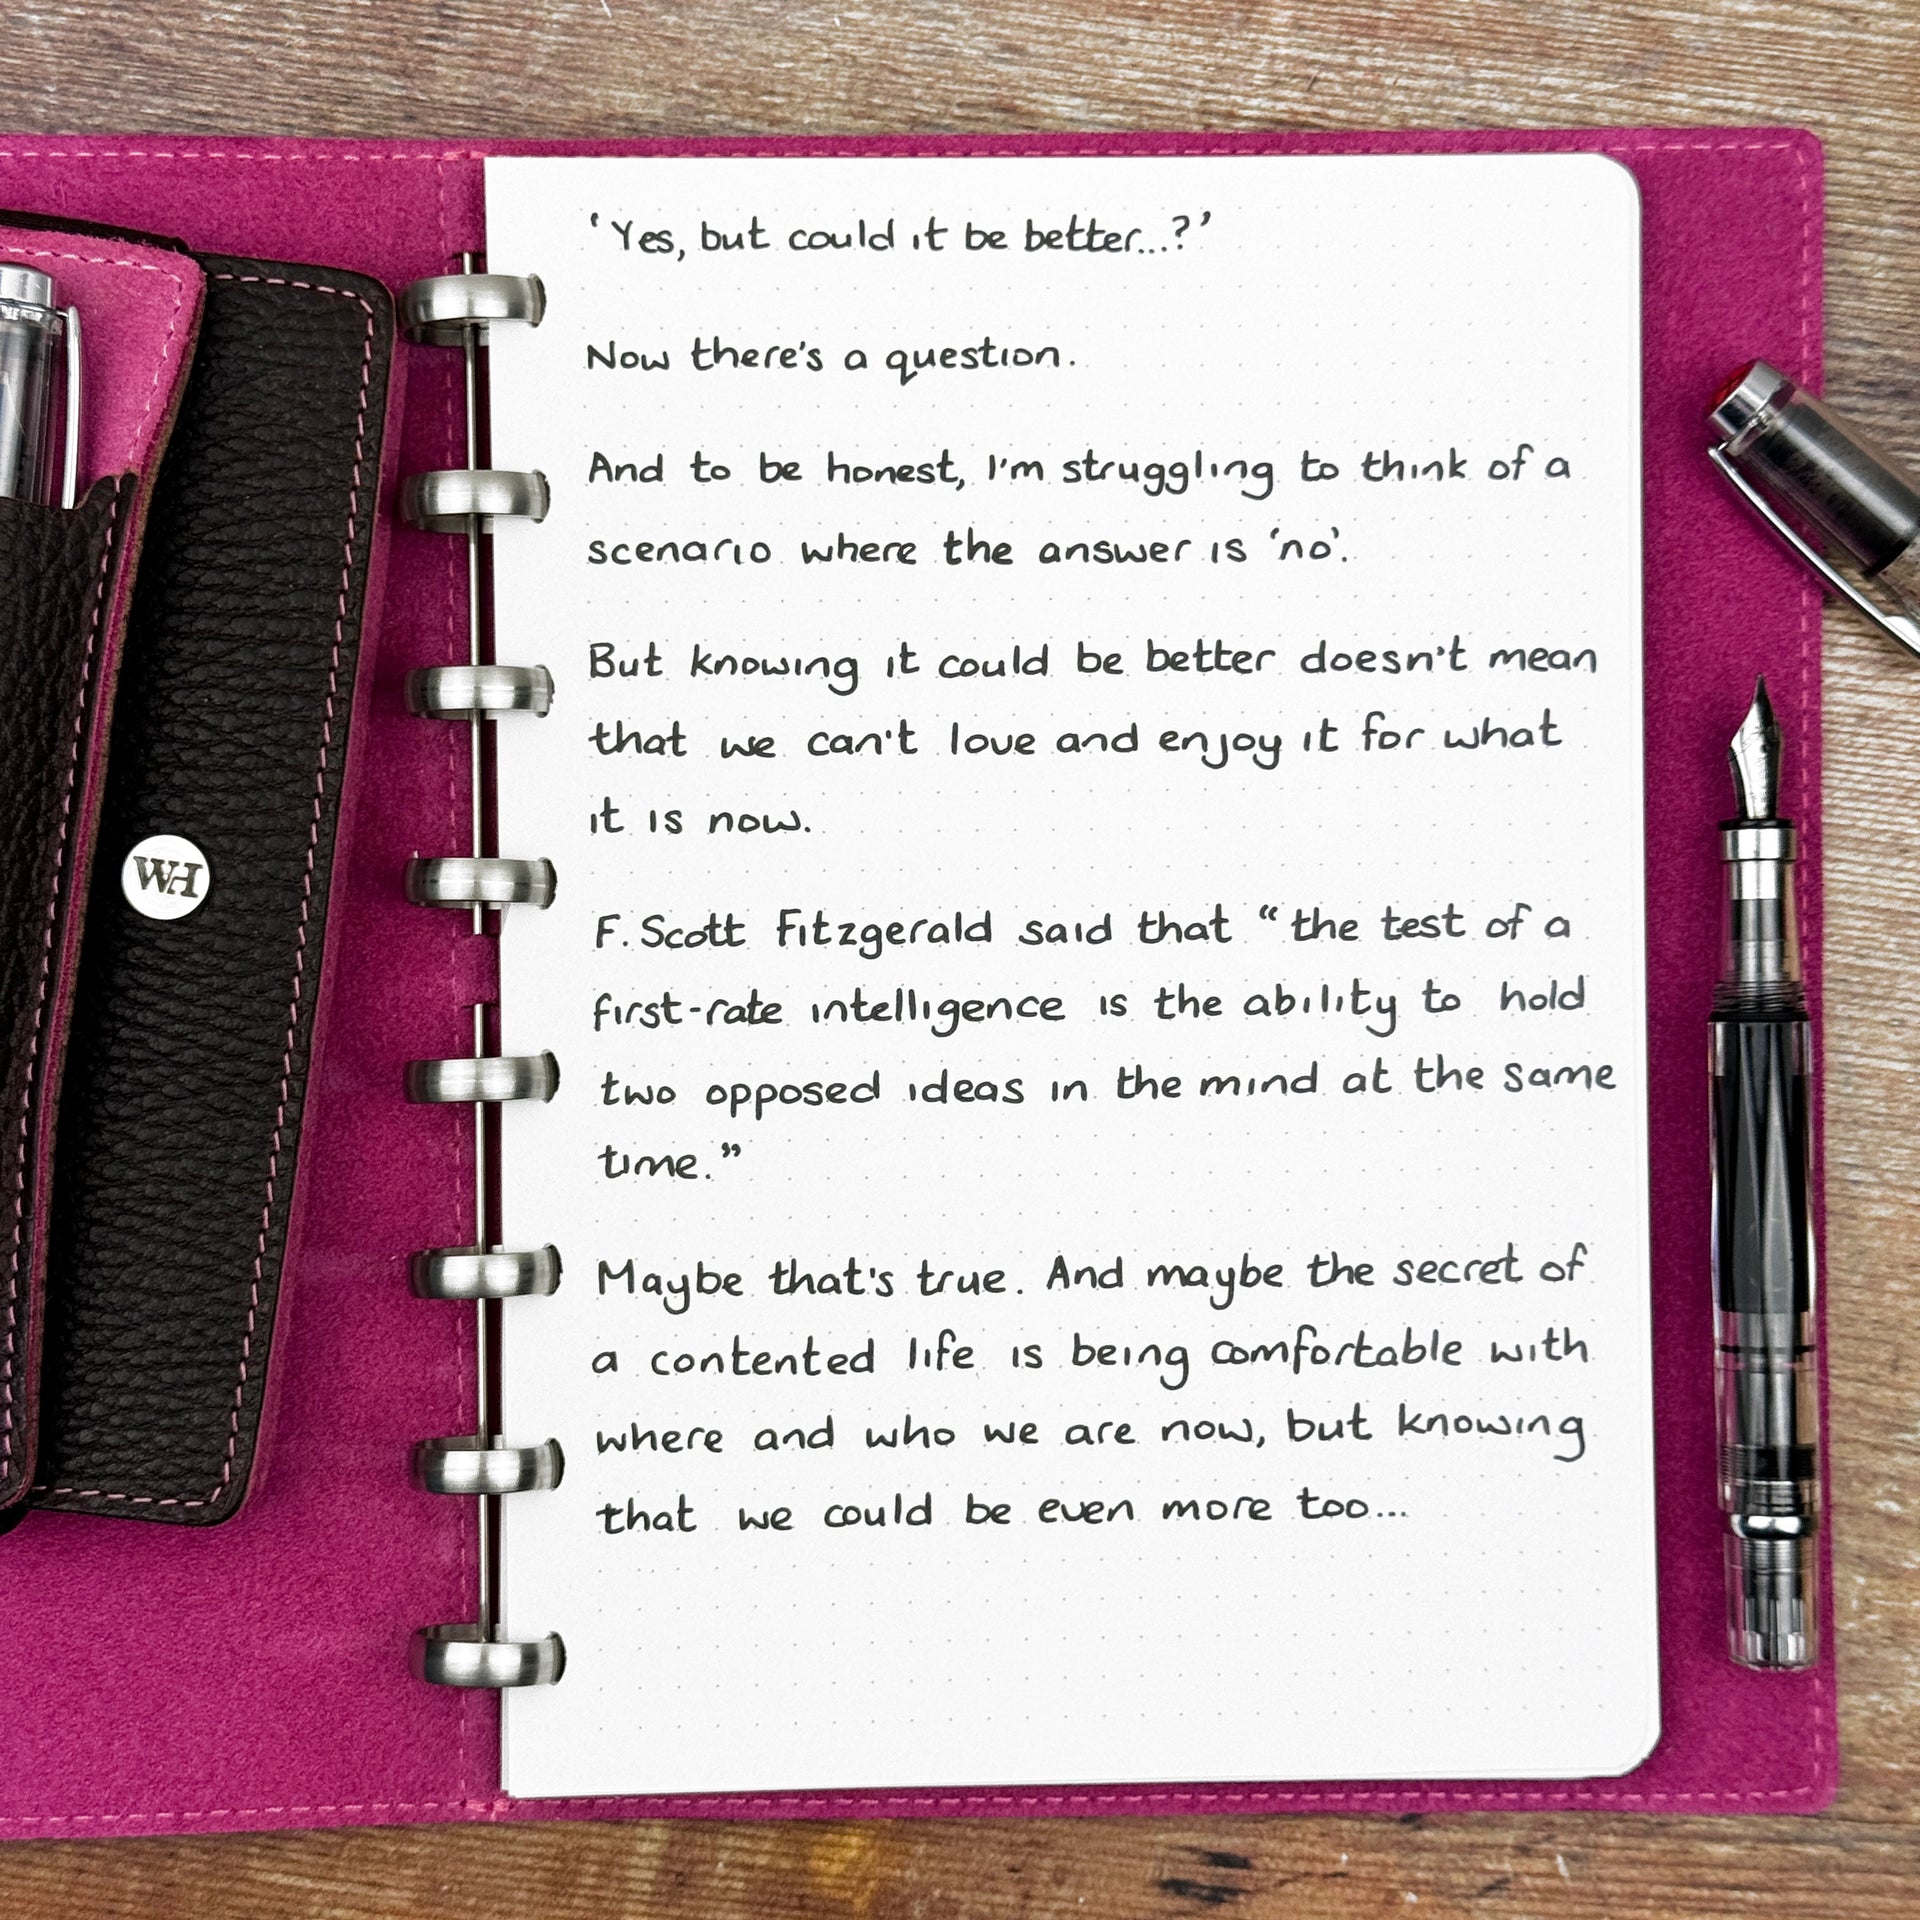 ‘Yes, but could it be better...?’
Now there's a question.
And to be honest, I'm struggling to think of a
scenario where the answer is ‘no’.
But knowing it could be better doesn't mean
that we can't love and enjoy it for what
it is now.
F. Scott Fitzgerald said that “the test of a
first-rate intelligence is the ability to hold
two opposed ideas in the mind at the same
time.”
Maybe that's true. And maybe the secret of
a contented life is being comfortable with
where and who we are now, but knowing
that we could be even more too...
WH